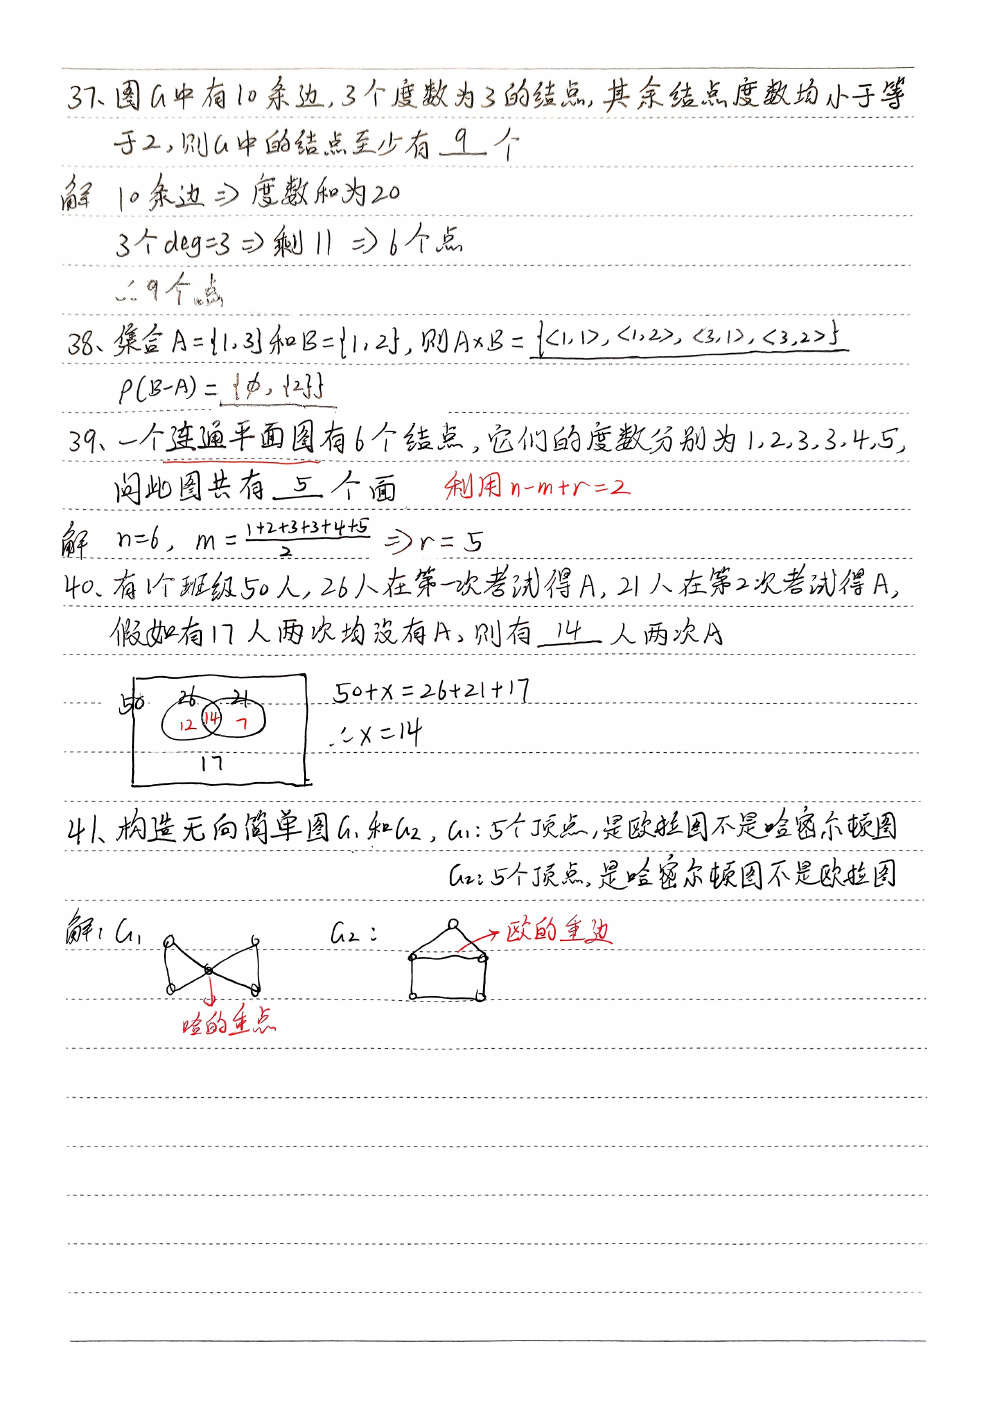 37、图G中有10条边,3个度数为3的结点,其余结点度数均小于等
于2,则G中的结点至少有 9 个
解 10条边 => 度数和为20
3个deg=3 => 剩11 => 6个点
∴9个点
38、集合A={1,3}和B={1,2},则A×B={<1,1>,<1,2>,<3,1>,<3,2>}
P(B-A)={ϕ,{2}}
39、一个连通平面图有6个结点,它们的度数分别为1,2,3,3,4,5,
问此图共有 5 个面 利用n-m+r=2
解 n=6, m=(1+2+3+3+4+5)/2 => r=5
40、有1个班级50人,26人在第一次考试得A,21人在第2次考试得A,
假如有17人两次均没有A、则有 14 人两次A
50 26 21 50+x=26+21+17
12 14 7 ∴x=14
17
41、构造无向简单图G1和G2,G1:5个顶点,是欧拉图不是哈密尔顿图
G2:5个顶点,是哈密尔顿图不是欧拉图
解:G1 G2: 欧的重边
哈的重点